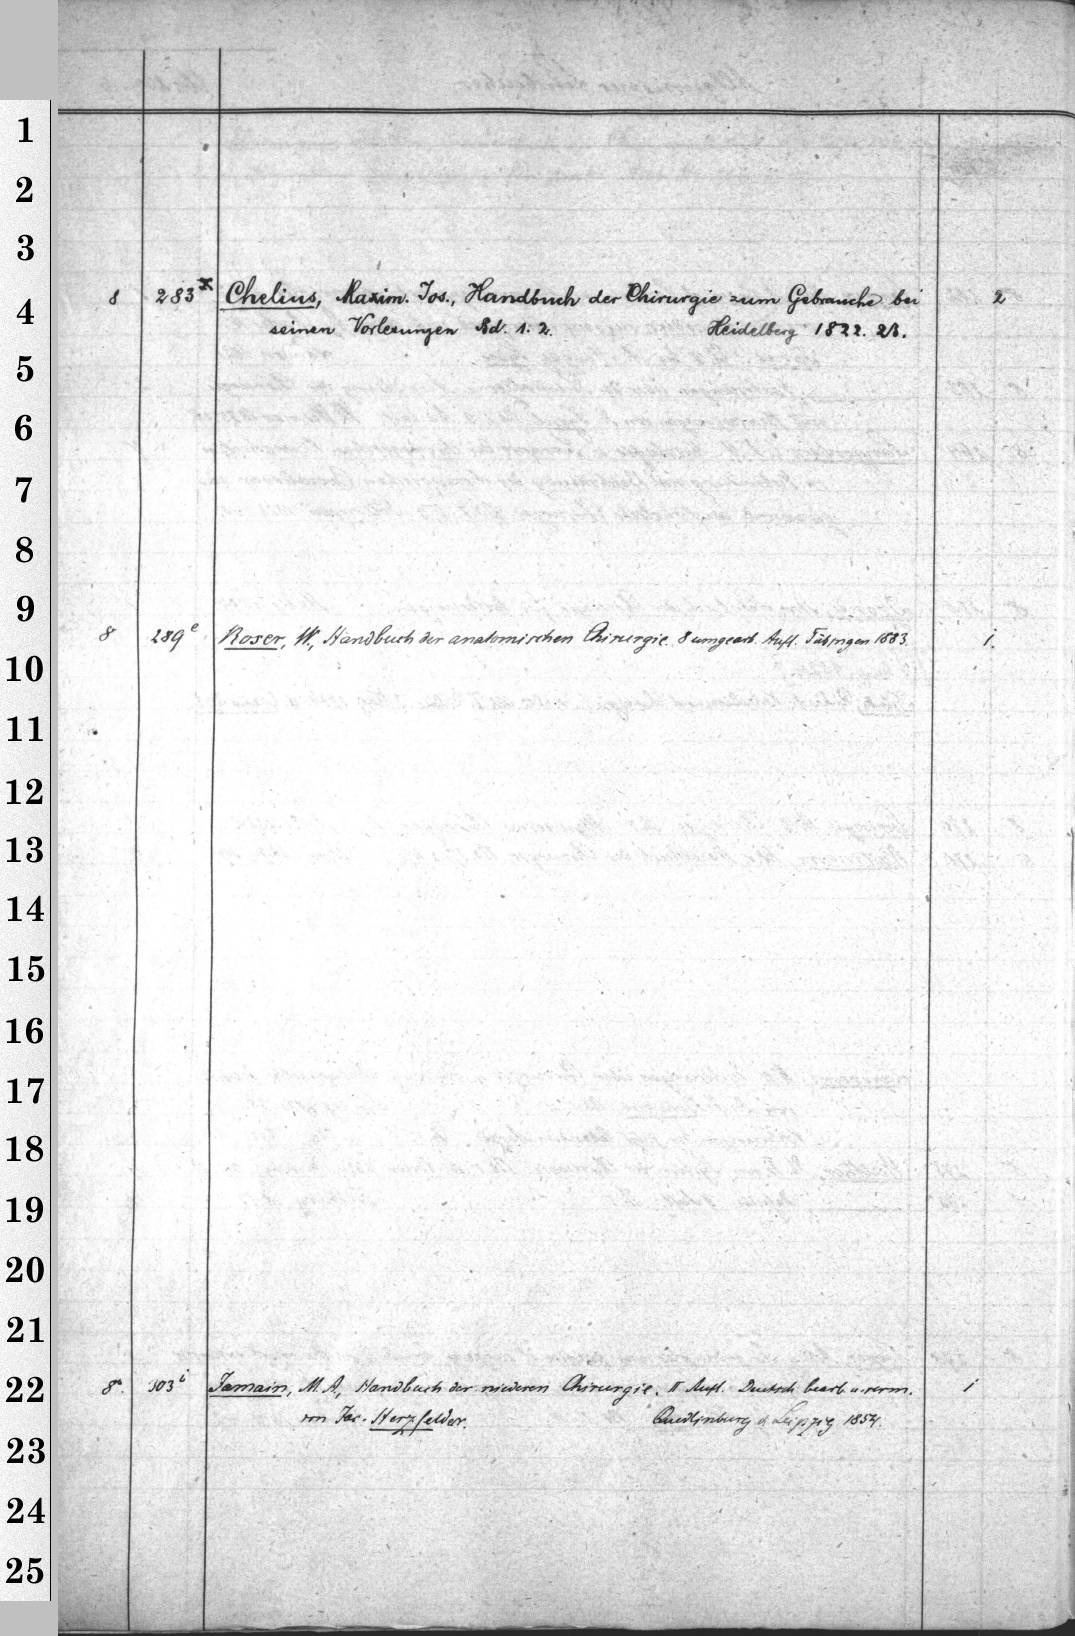 1
2
3
4
8 283x Chelius, Maxim. Jos., Handbuch der Chirurgie zum Gebrauche bei 2
seinen Vorlesungen Bd. 1. 2. Heidelberg 1822. 2B.
5
6
7
8
9
8 289e Roser, W., Handbuch der anatomischen Chirurgie. 8 umgearb. Aufl. Tübingen 1883. 1.
10
11
12
13
14
15
16
17
18
19
20
21
22
8° 303i Jamain, M. A., Handbuch der niederen Chirurgie. II Aufl. Deutsch bearb. u. verm. 1
von Jac. Herzfelder. Quedlinburg & Leipzig 1854.
23
24
25